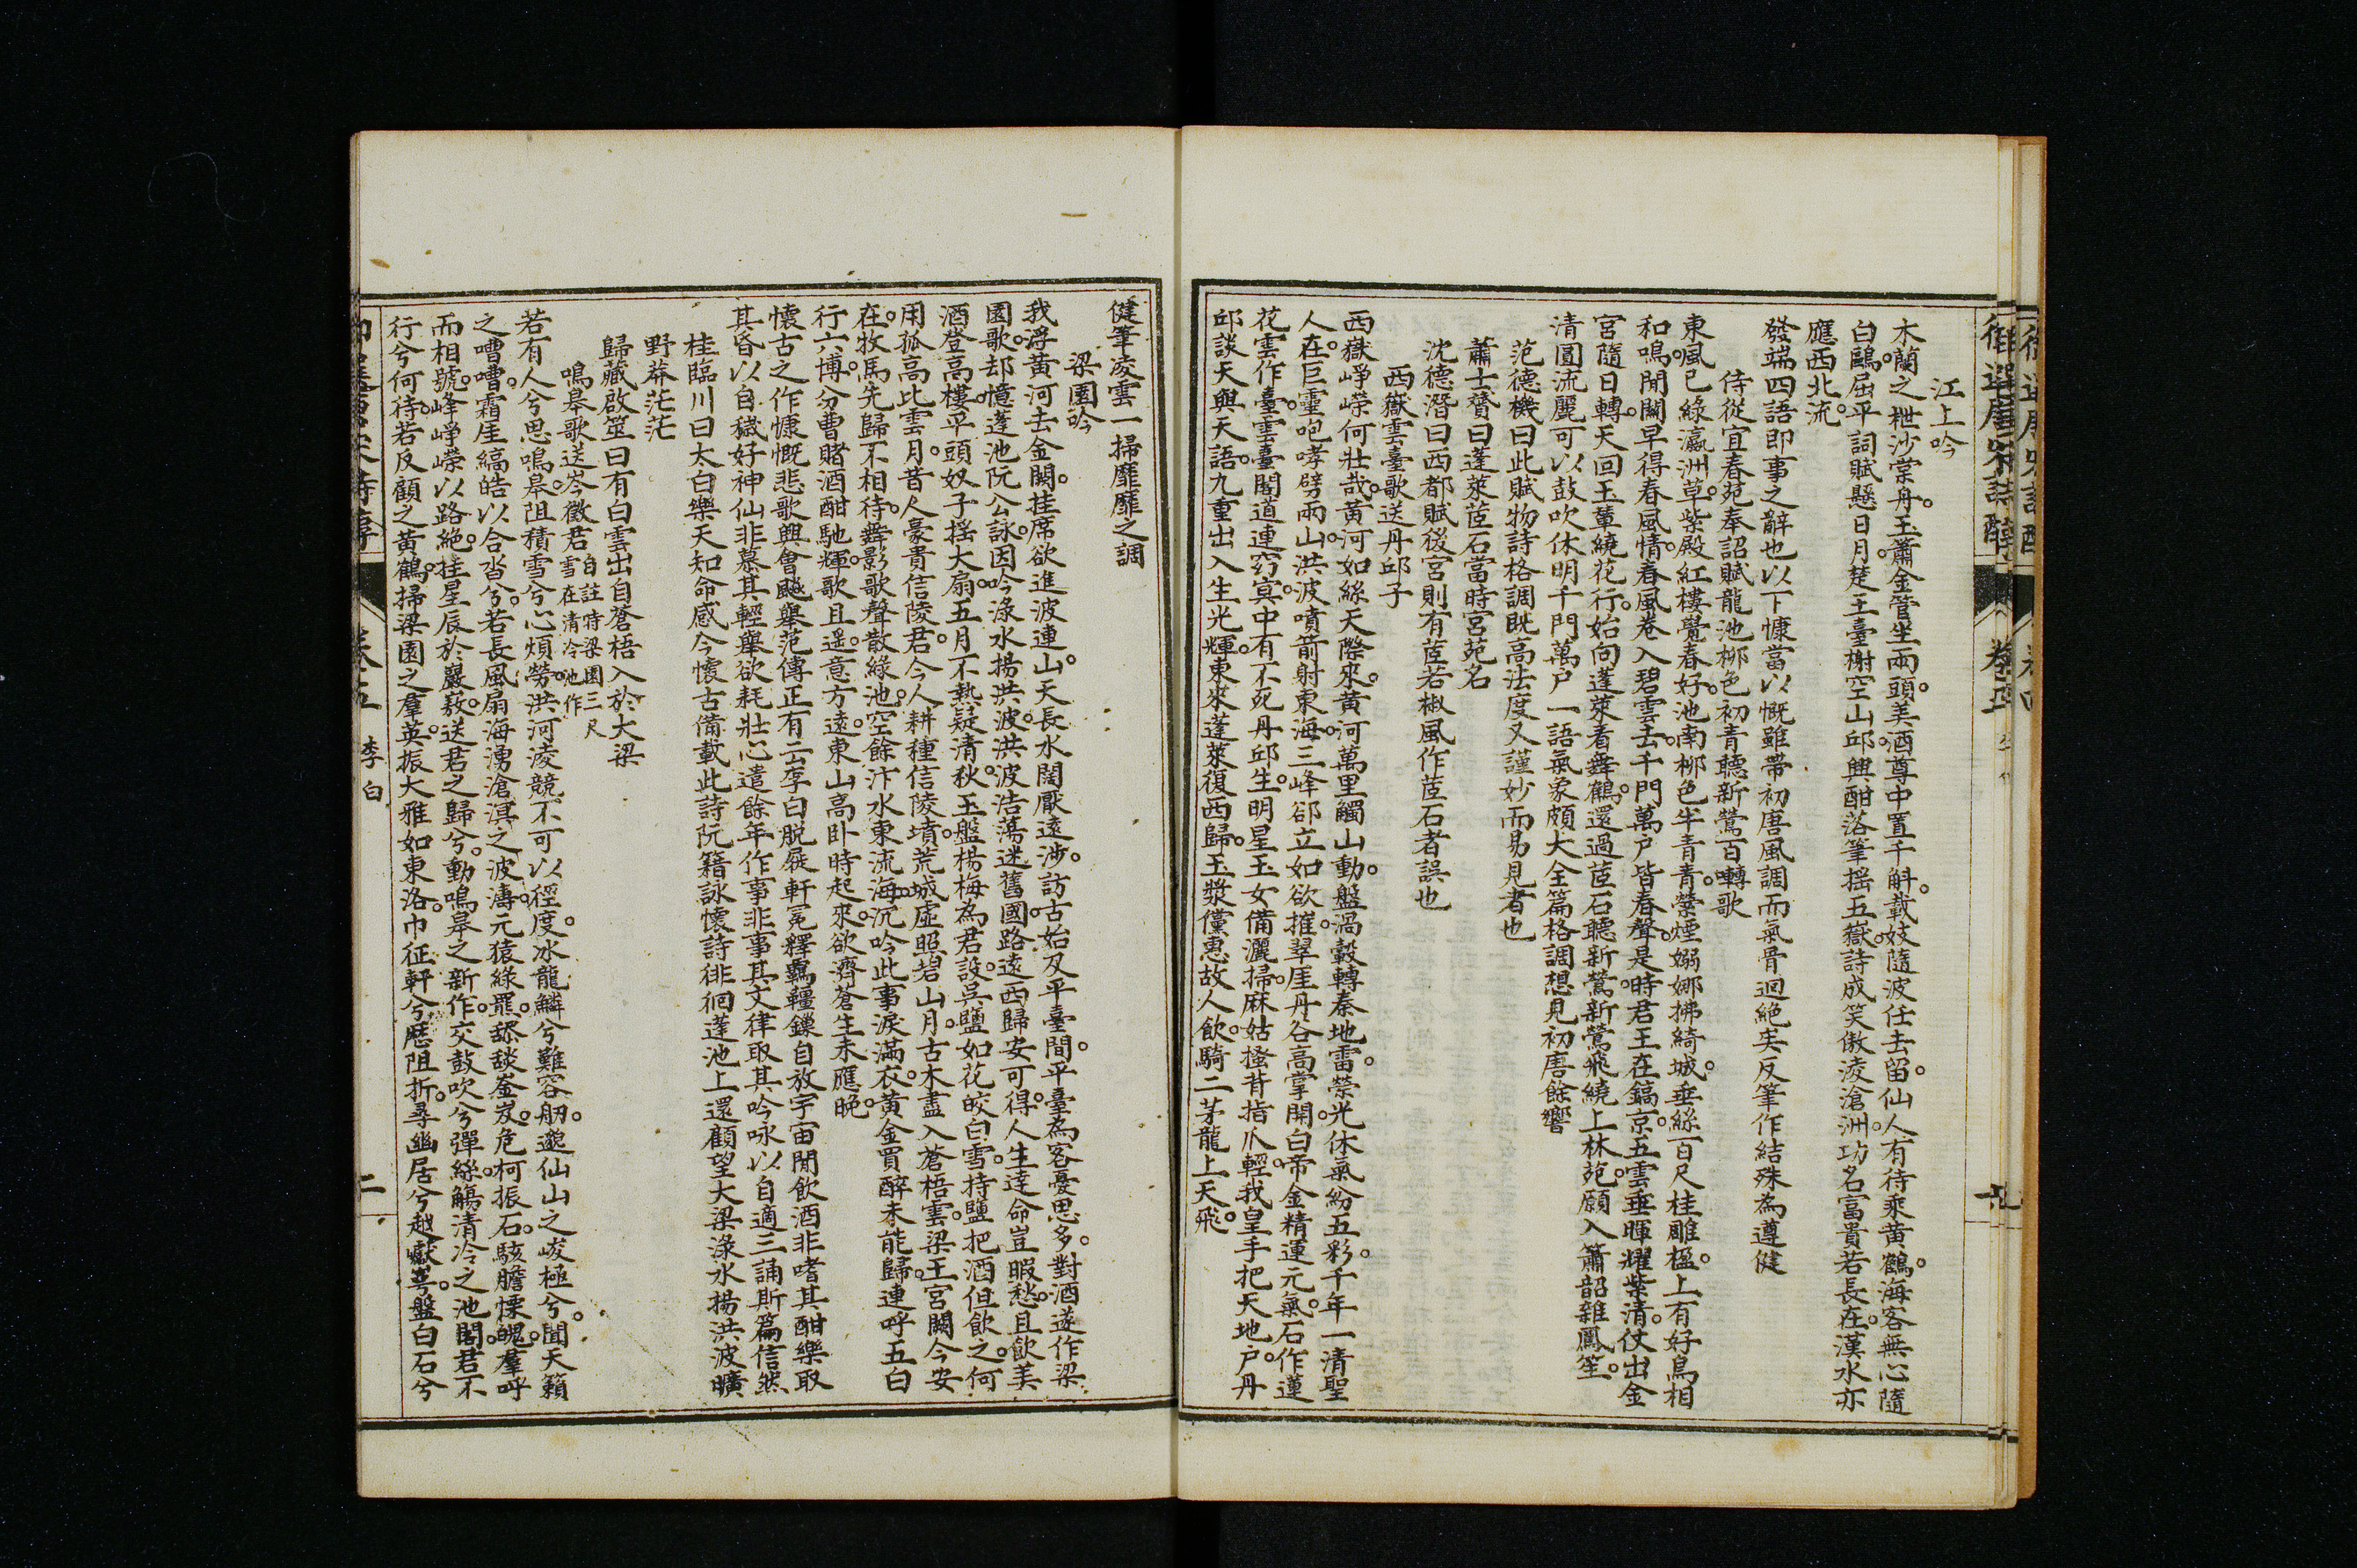 江上吟
木蘭之枻沙棠舟。玉簫金管坐兩頭。美酒尊中置千斛。載妓隨波任去留。仙人有待乘黃鶴。海客無心隨
白鷗。屈平詞賦懸日月。楚王臺榭空山邱。興酣落筆搖五嶽。詩成笑傲淩滄洲。功名富貴若長在。漢水亦
應西北流。
發端四語即事之辭也以下慷當以慨雖帶初唐風調而氣骨迥絕矣反筆作結殊為遵健
侍從宜春苑奉詔賦龍池柳色初青聽新鶯百囀歌
東風已綠瀛洲草。紫殿紅樓覺春好。池南柳色半青青。縈煙嫋娜拂綺城。垂絲百尺桂雕楹。上有好鳥相
和鳴。閒關早得春風情。春風卷入碧雲去。千門萬戶皆春聲。是時君王在鎬京。五雲垂暉耀紫清。仗出金
宮隨日轉。天回玉輦繞花行。始向蓬萊看舞鶴。還過茝石聽新鶯。新鶯飛繞上林苑。願入簫韶雜鳳笙。
清圓流麗可以鼓吹休明千門萬戶一語氣象頗大全篇格調想見初唐餘響
范德機曰此賦物詩格調既高法度又謹妙而易見者也
蕭士贇曰蓬萊茝石當時宮苑名
沈德潛曰西都賦後宮則有茝若椒風作茝石者誤也
西嶽雲臺歌送丹邱子
西嶽崢嶸何壯哉。黃河如絲天際來。黃河萬里觸山動。盤渦轂轉秦地雷。榮光休氣紛五彩。千年一清聖
人在。巨靈咆哮劈兩山。洪波噴箭射東海。三峰郤立如欲摧。翠厓丹谷高掌開。白帝金精運元氣。石作蓮
花雲作臺。雲臺閣道連窈冥。中有不死丹邱生。明星玉女備灑掃。麻姑搔背指爪輕。我皇手把天地戶。丹
邱談天與天語。九重出入生光輝。東來蓬萊復西歸。玉漿儻惠故人飲。騎二茅龍上天飛。
健筆淩雲一掃靡靡之調
梁園吟
我浮黃河去金關。挂席欲進波連山。天長水闊厭遠涉。訪古始及平臺間。平臺為客憂思多。對酒遂作梁
園歌。却憶蓬池阮公詠。因吟淥水揚洪波。洪波浩蕩迷舊國。路遠西歸安可得。人生達命豈暇愁。且飲美
酒登高樓。平頭奴子搖大扇。五月不熱疑清秋。玉盤楊梅為君設。吳鹽如花皎白雪。持鹽把酒但飲之。何
用孤高比雲月。昔人豪貴信陵君。今人耕種信陵墳。荒城虛照碧山月。古木盡入蒼梧雲。梁王宮闕今安
在。牧馬先歸不相待。舞影歌聲散綠池。空餘汴水東流海。沉吟此事淚滿衣。黃金買醉未能歸。連呼五白
行六博。分曹賭酒酣馳輝。歌且遙。意方遠。東山高卧時起來。欲濟蒼生未應晚。
懷古之作慷慨悲歌興會飈舉范傳正有云李白脱屣軒冕釋羈韁鏁自放宇宙閒飲酒非嗜其酣樂取
其昏以自穢好神仙非慕其輕舉欲耗壯心遣餘年作事非事其文律取其吟咏以自適三誦斯篇信然
桂臨川曰太白樂天知命感今懷古備載此詩阮籍詠懷詩徘徊蓬池上還顧望大梁淥水揚洪波曠
野莽茫茫
歸藏啟筮曰有白雲出自蒼梧入於大梁
鳴皋歌送岑徵君自註時梁園三尺雪在清冷池作
若有人兮思鳴皋。阻積雪兮心煩勞。洪河淩競不可以徑度。冰龍鱗兮難容舠。邈仙山之峻極兮。聞天籟
之嘈嘈。霜厓縞皓以合沓兮。若長風扇海湧滄溟之波濤。元猿綠羆。舔談崟岌。危柯振石。駭膽慄魄。羣呼
而相號。峰崢嶸以路絕。挂星辰於巖𡼏。送君之歸兮。動鳴皋之新作。交鼓吹兮彈絲。觴清冷之池閣。君不
行兮何待。若反顧之黃鶴。掃梁園之羣英。振大雅如東洛。巾征軒兮歷阻折。尋幽居兮越巘崿。盤白石兮
卷五
李白
二